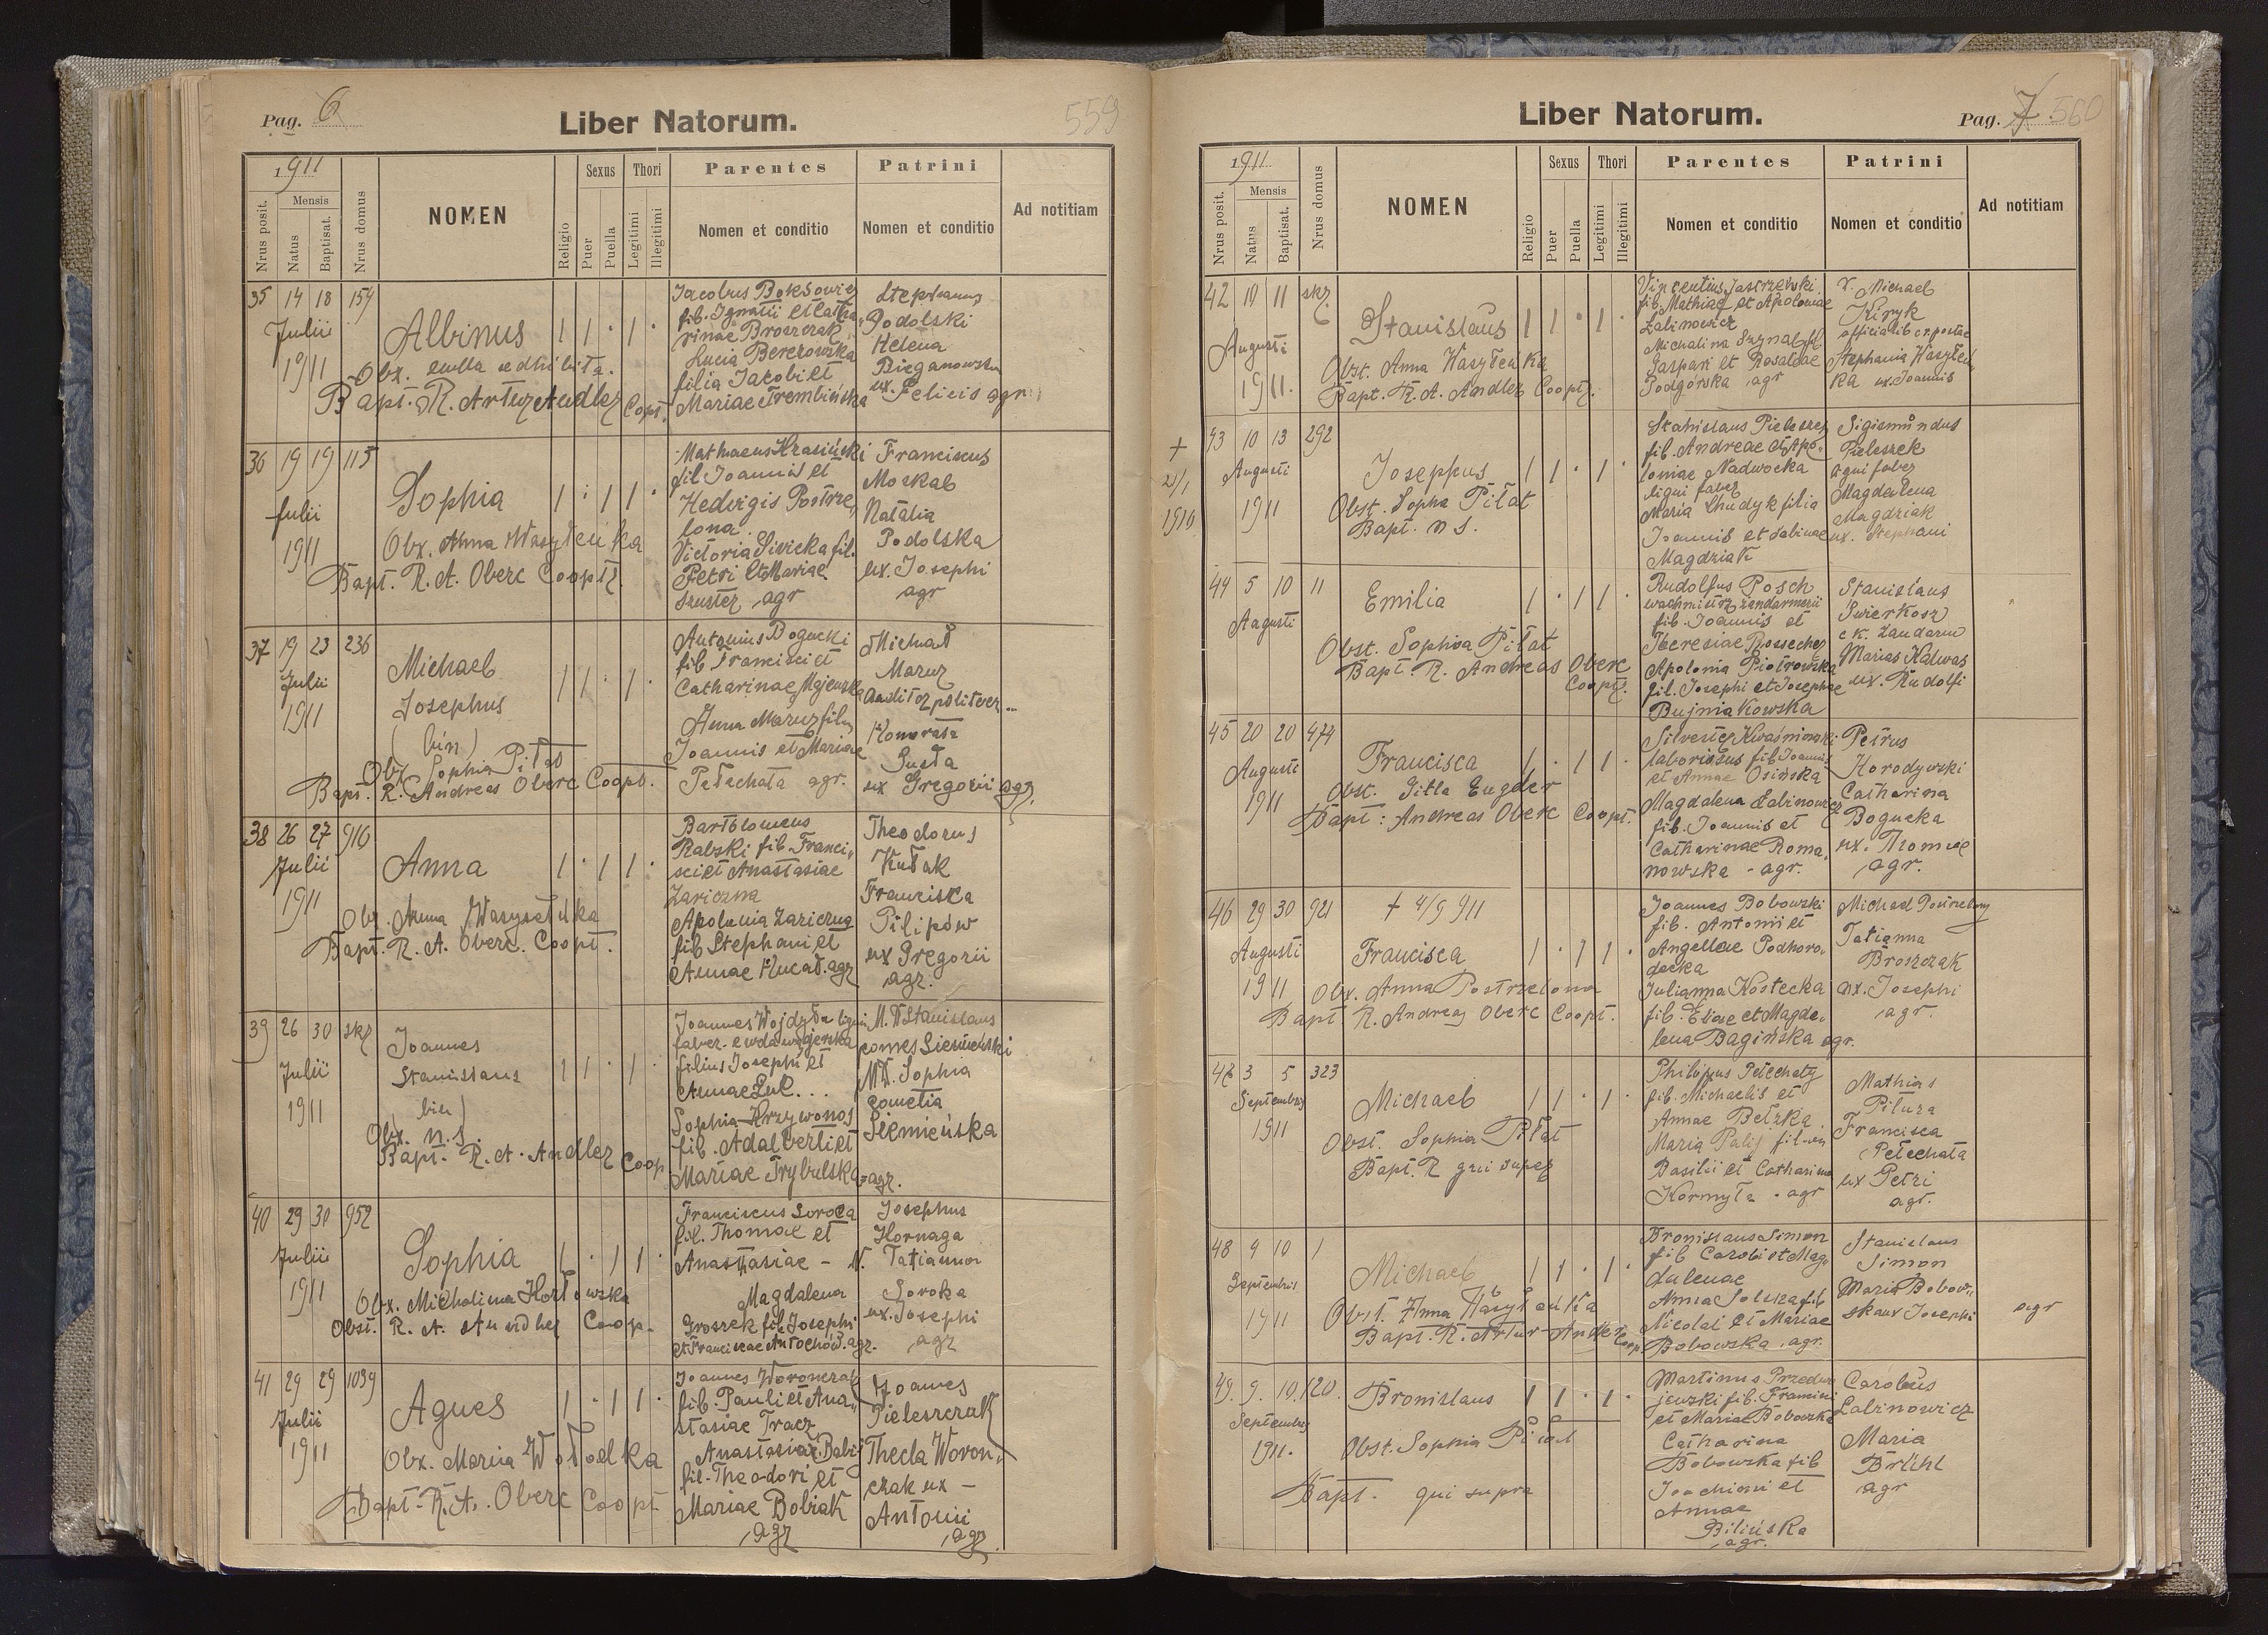 Pag. 6
Liber Natorum.
559
1911
Nrus posit.
Mensis
Natus
Baptisat.
Nrus domus
NOMEN
Religio
Sexus
Puer
Puella
Thori
Legitimi
Illegitimi
Parentes
Nomen et conditio
Patrini
Nomen et conditio
Ad notitiam
35 14 18 154
Julii
1911
Albinus
Obx. nulla adhibita.
Bapt. R. Artur Andler Copt.
Jacobus Boksowicz
fil. Ignatii et Catha,,
rinae Broszczak
Lucia Berezowska
filia Jacobi et
Mariae Trembińska
Stephanus
Podolski
Helena
Bieganowska
ux. Felicis agr.
36 19 19 115
Julii
1911
Sophia
Obx. Anna Wasyłeńka
Bapt. R. A. Oberc Cooptr.
Mathaeus Krasiński
fil. Joannis et
Hedvigis Postrze,,
lona
Victoria Sivicka fil.
Petri et Mariae
Szuster, agr
Franciscus
Moskal
Natalia
Podolska
ux. Josephi
agr
37 19 23 236
Julii
1911
Michael
Josephus
(bin)
Obx. Sophia Piłat
Bapt. R. Andreas Oberc Coopt.
Antonius Bogucki
fil. Francisci et
Catharinae Majewska
Anna Mazur filia
Joannis et Mariae
Petechata agr.
Michał
Mazur
auditor politech...
Honorata
Susta
ux Gregorii agr.
38 26 27 910
Julii
1911
Anna
Obx. Anna Wasyłeńka
Bapt. R. A. Oberc. Coopt.
Bartholomeus
Rabski fil. Franci,,
sci et Anastasiae
Zariczna
Apolonia Zariczna
fil Stephani et
Annae Kucał. agr
Theodorus
Kułak
Franciska
Pilipów
ux Gregorii
agr.
39 26 30 skr
Julii
1911
Joannes
Stanislaus
bin)
Obx. n. s.
Bapt. R. A. Andler Coop.
Joannes Wojdyła ligni
faber
filius Josephi et
Annae Lul...
Sophia Krzywonos
fil. Adalberti et
Mariae Trybulska agr.
M. D. Stanislaus
comes Siemieński
M. D. Sophia
cometia
Siemieńska
40 29 30 952
Julii
1911
Sophia
Obx. Michalina Horłowska
Obst. R. A. Andler Coop.
Franciscus Soroca
fil. Thomae et
Anastasiae - N.
Magdalena
Groszek fil. Josephi
et Franciscae Antochów. agr.
Josephus
Hornaga
Tatianna
Soroka
ux. Josephi
agr
41 29 29 1039
Julii
1911
Agnes
Obx. Maria Wołodka
Bapt. R. A. Oberc Coopt
Joannes Woronczak
fil. Pauli et Ana,,
stasiae Tracz
Anastasia Babij
fil. Theodori et
Mariae Bobiak
agr
Joannes
Pieleszczak
Thecla Woron,,
czak ux -
Antonii
agr.
Liber Natorum.
Pag. 7 560
1911
Nrus posit.
Mensis
Natus
Baptisat.
Nrus domus
NOMEN
Religio
Sexus
Puer
Puella
Thori
Legitimi
Illegitimi
Parentes
Nomen et conditio
Patrini
Nomen et conditio
Ad notitiam
42 10 11 skr.
Augusti
1911.
Stanislaus
Obst. Anna Wasyłeńka
Bapt. R. A. Andler Cooptr.
Vincentius Jastrzewski
fil. Mathiae et Apoloniae
Łabinowicz
Michalina Szynal fil.
Gaspari et Rosaliae
Podgórska agr
Michael
Kiryk
Stephania Wasyłeń,,
ka ux. Joannis
+ 43 10 13 292
21/1
1916
Augusti
1911
Josephus
Obst. Sopha Piłat
Bapt. n s.
Stanislaus Pieleszek
fil. Andreae et Apo,,
loniae Nadwocka
ligni faber
Maria Chudyk filia
Joannis et Sabinae
Magdziak
Sigismundus
Pieleszek
ligni faber
Magdalena
Magdziak
ux. Stephani
44 5 10 11
Augusti
Emilia
Obst. Sophia Piłat
Bapt. R. Andreas Oberc
Cooptr.
Rudolfus Posch
wachmistrz żandarmerii
fil. Joannis et
Theresiae
Apolonia Piotrowska
fil. Josephi et Josephae
Bujniakowska
Stanislaus
Świerkosz
c k. żandarm
Marias Kalwas
ux. Rudolfi
45 20 20 474
Augusti
1911
Francisca
Obst. Gitla Eugder
Bapt: Andreas Oberc Coopt.
Silvester Kwaśniewski
laboriosus fil Joannis
et Annae Osińska
Magdalena Łabinowicz
fil. Joannis et
Catharinae Roma,,
nowska - agr.
Petrus
Horodywski
Catharina
Bogucka
ux. Thomae
agr.
46 29 30 921
Augusti
1911
+ 4/9 911
Francisca
Obx. Anna Postrzelona
Bapt R. Andreas Oberc Coopt.
Joannes Bobowski
fil. Antonii et
Angellae Podhoro,,
decka
Julianna Kostecka
fil. Eliae et Magda,,
lena Bagińska agr.
Michael Postrzelony
Tatianna
Broszczak
ux. Josephi
agr.
47 3 5 323
Septembris
1911
Michael
Obst. Sophia Piłat
Bapt. R qui super
Philippus Petechaty
fil. Michaelis et
Annae Bełzka
Maria Palij filia
Basilii et Catharina
Kormyła - agr
Mathias
Pitura
Francisca
Petechata
ux Petri
agr.
48 9 10 1
Septembris
1911
Michael
Obst. Anna Wasyłeńka
Bapt. R. Artur Andler Coop.
Bronislaus Simon
fil Caroli et Mag,,
dalenae
Anna Solska fil
Nicolai et Mariae
Bobowska, agr.
Stanislaus
Simon
Maria Bobow,,
ska ux Josephi
agr
49. 9. 10. 120.
Septembris
1911.
Bronislaus
Obst. Sophia Piłat
Bapt. qui supra
Martinus Przedw
jewski fil. Francisci
et Maria Bobowska
Catharina
Bobowska fil
Joachimi et
Annae
Bilińska
agr.
Carolus
Łabinowicz
Maria
Brühl
agr